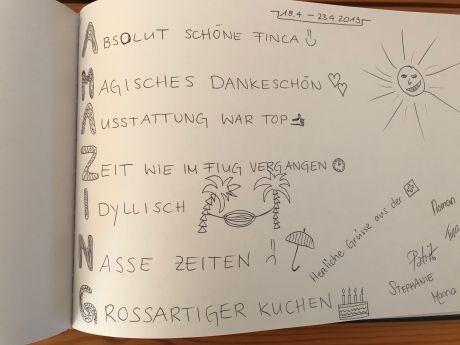 18.4. – 23.4.2019
ABSOLUT SCHÖNE FINCA
MAGISCHES DANKESCHÖN
AUSSTATTUNG WAR TOP
ZEIT WIE IM FLUG VERGANGEN
IDYLLISCH
NASSE ZEITEN
GROSSARTIGER KUCHEN
Herzliche Grüsse aus der
Roman
Patrik
STEPHANIE